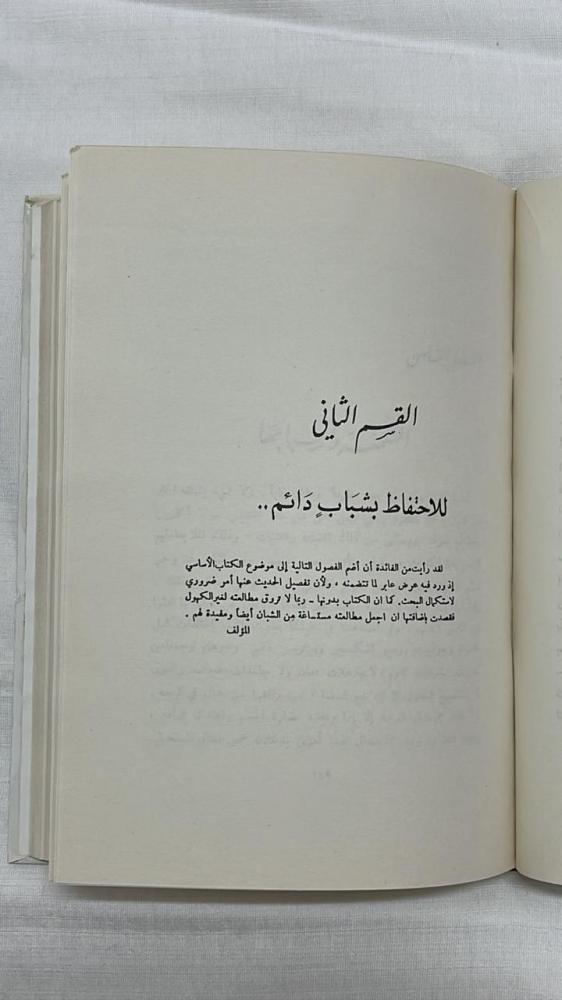 القسم الثاني
للاحتفاظ بشبَابٍ دَائم ..
لقد رأيت من الفائدة أن أضم الفصول التالية إلى موضوع الكتاب الأساسي
إذ ورد فيه عرض عابر لما تتضمنه ، ولأن تفصيل الحديث عنها أمر ضروري
لاستكمال البحث. كما ان الكتاب بدونها - ربما لا تروق مطالعته لغير الكهول
فقصدت بإضافتها ان اجعل مطالعته مستساغة من الشبان أيضاً ومفيدة لهم .
المؤلف